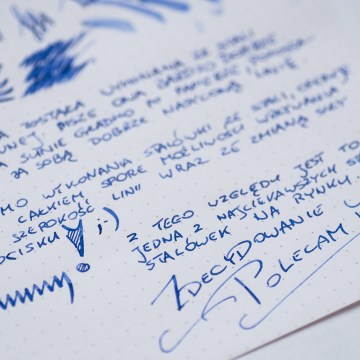 ZOSTAŁA WYKONANA ZE STALI
PISZE ONA BARDZO DOBRZE
SUNIE GŁADKO PO PAPIERZE
ZA SOBĄ DOBRZE NASYCONĄ LINIĘ
MO WYKONANIA STALÓWKI ZE STALI, OFERUJE
CAŁKIEM SPORE MOŻLIWOŚCI
SZEROKOŚĆ LINII WRAZ ZE ZMIANĄ SIŁY
OCISKU! ;-)
Z TEGO WZGLĘDU JEST TO
JEDNA Z NAJCIEKAWSZYCH
STALÓWEK NA RYNKU.
ZDECYDOWANIE
POLECAM!